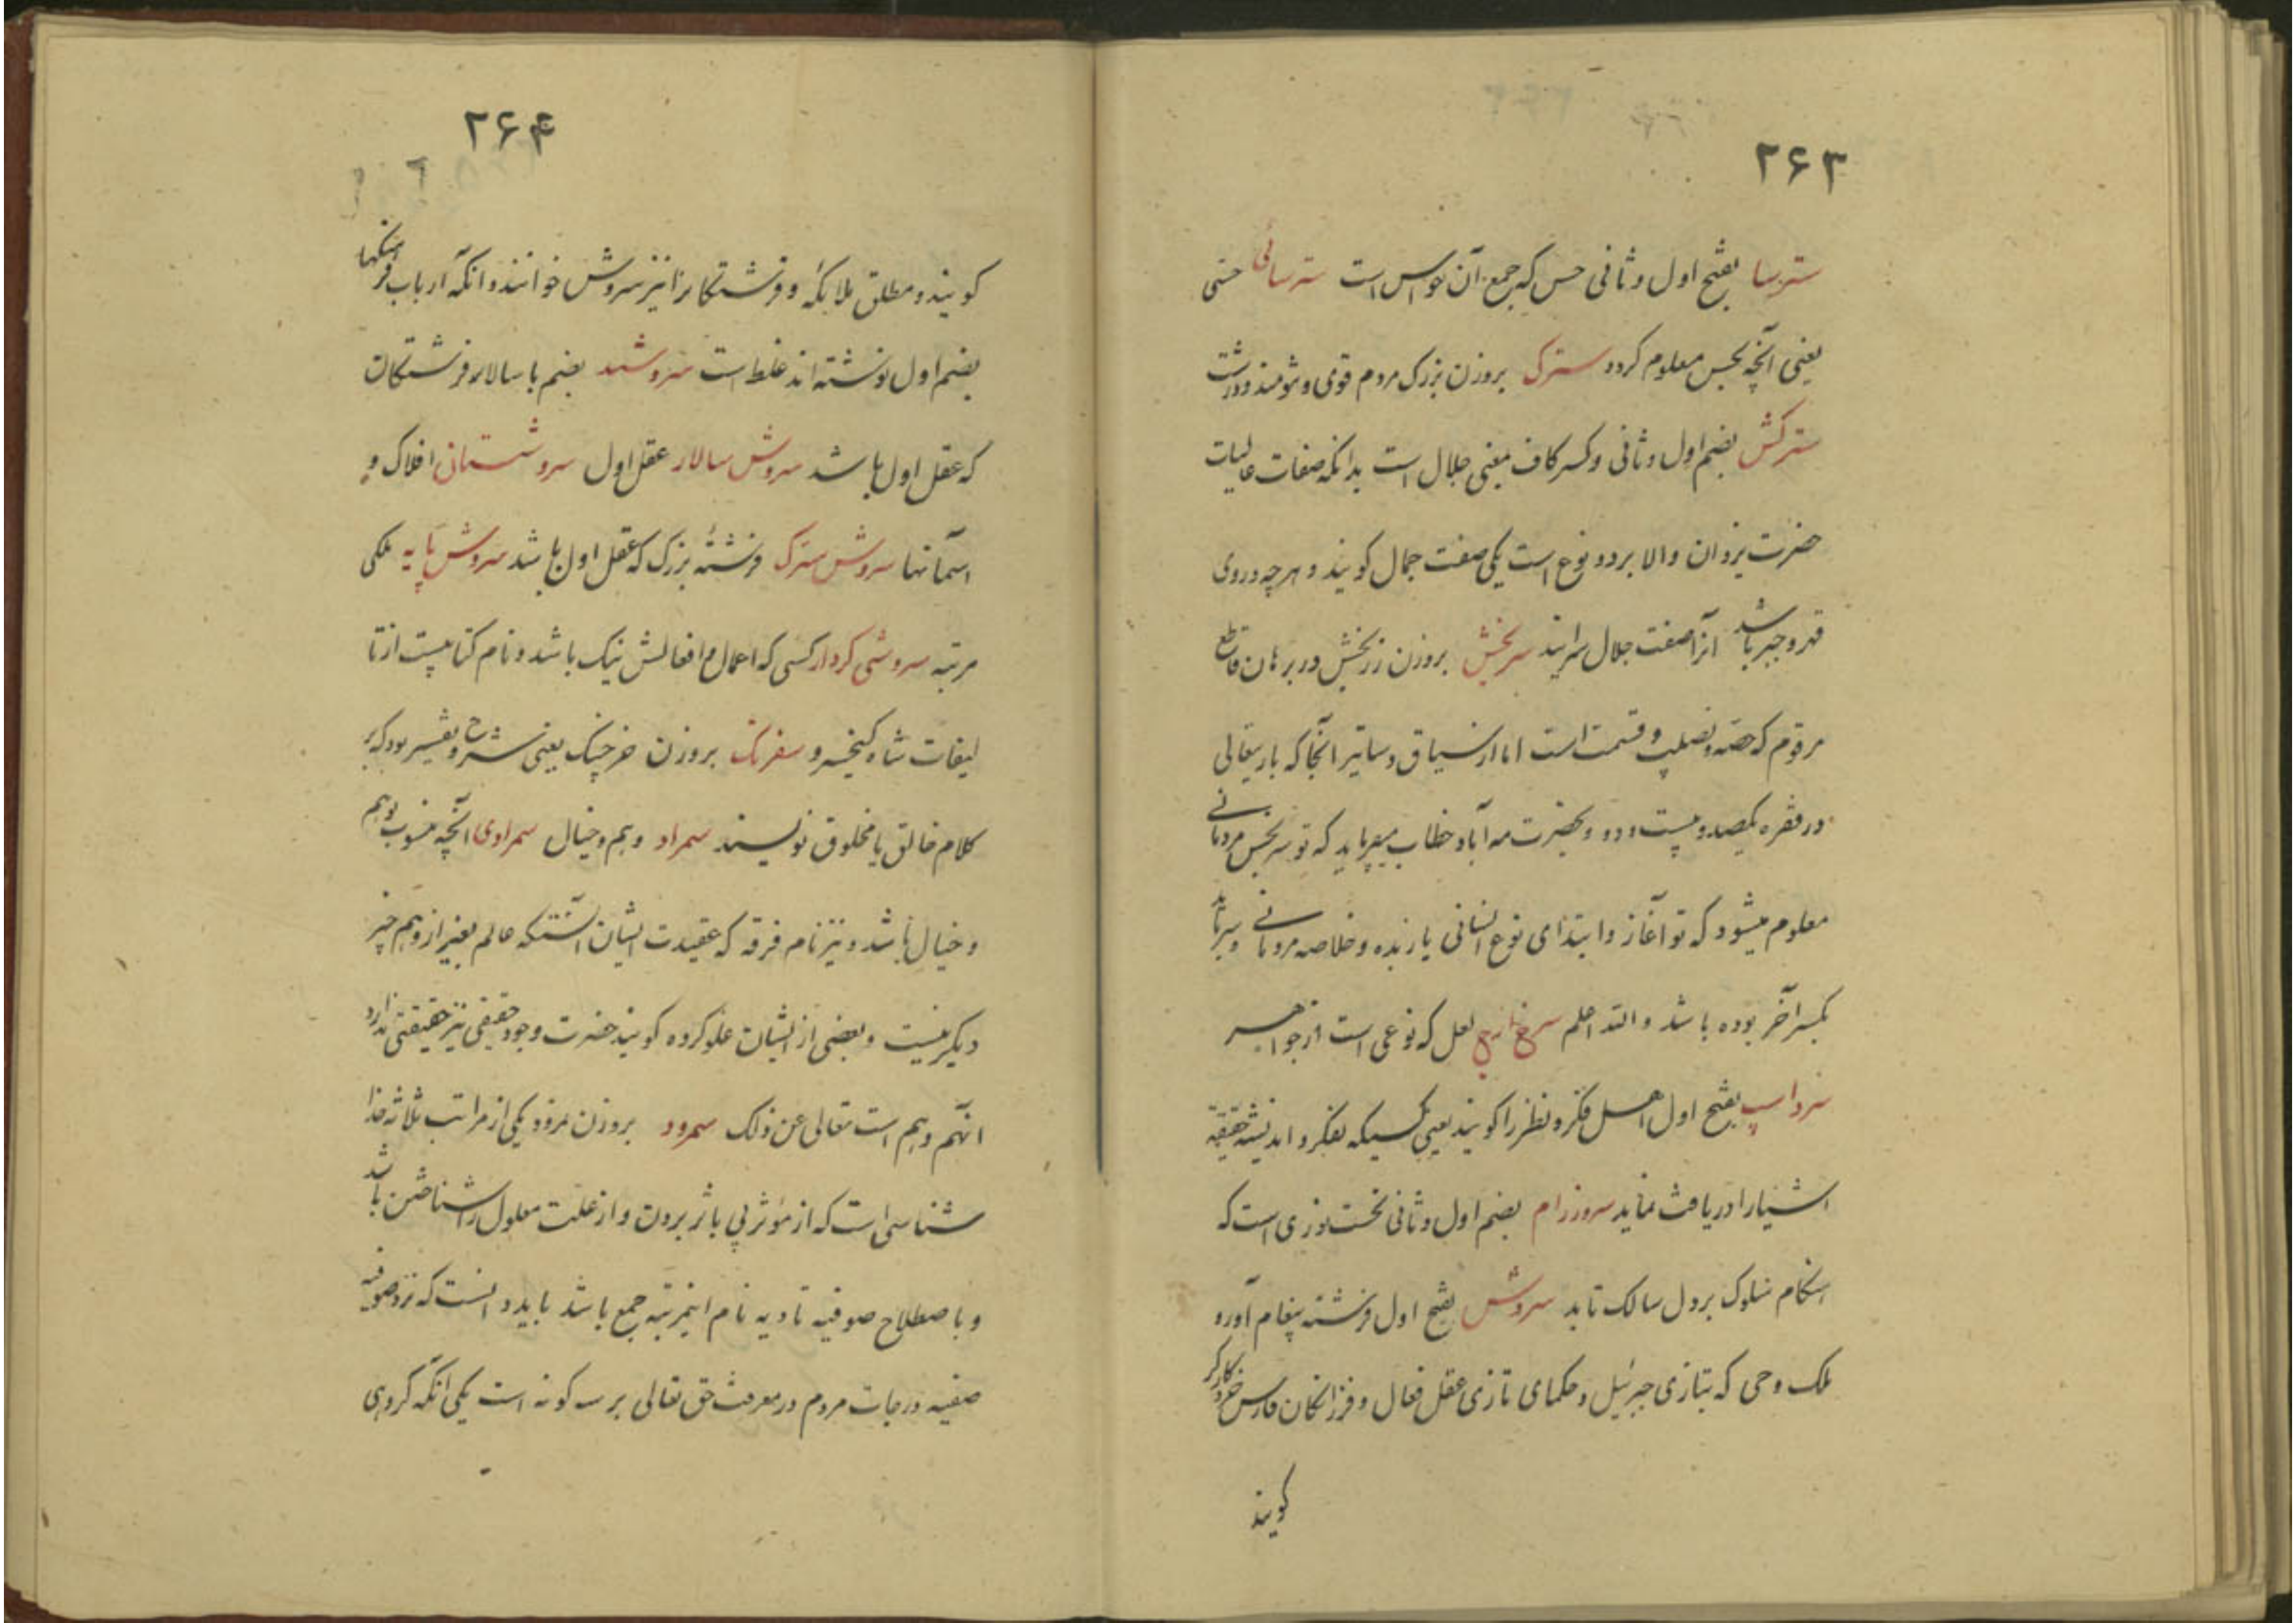 ۲۶۳
سترسا بفتح اول و ثانی حس که جمع آن حواس است سترسائی حسی
یعنی آنچه بحس معلوم کردد سترک بروزن بزرک مردم قوی و تنومند و درشت
سترکش بضم اول و ثانی و کسر کاف بمعنی جلال است بدانکه صفات عالیات
حضرت یزدان والا بر دو نوع است یکی صفت جمال کویند و هرچه در وی
قهر و جبر باشد انرا صفت جلال سرایند سربخش بروزن زربخش در برهان قاطع
مرقوم که حصه و نصیب و قسمت است اما از سیاق دساتیر انجا که باریتعالی
در فقره یکصد و بیست و دو بحضرت مه آباد خطاب میفرماید که تو سربخش مردمانی
معلوم میشود که تو آغاز و ابتدای نوع انسانی یا زبده و خلاصه مردمانی و سرباید
بکسر آخر بوده باشد والله اعلم سرخ لعل که نوعی است از جواهر
سرداسپ بفتح اول اهل فکر و نظر را کویند یعنی کسیکه بفکر و اندیشه حقیقة
اشیار ا دریافت نماید سروزرام بضم اول و ثانی نخست نوری است که
هنکام سلوک بر دل سالک تابد سروش بفتح اول فرشته پیغام آور و
ملک وحی که بتازی جبرئیل و حکمای تازی عقل فعال و فرزانکان فارس خرد کارکر
کویند
۲۶۴
کویند و مطلق ملایکه و فرشتکانرا نیز سروش خوانند و انکه ارباب فرهنکها
بضم اول نوشته اند غلط است سروشبد بضم با سالار فرشتکان
که عقل اول باشد سروش سالار عقل اول سروشستانی افلاک و
آسمانها سروش سترک فرشتهٔ بزرک که عقل اول باشد سروش پایه ملکی
مرتبه سروشی کردار کسی که اعمال و افعالش نیک باشد و نام کتابیست از تا
لیفات شاه کیخسرو سفرنک بروزن خرچنک یعنی شرح و تفسیر بود که بر
کلام خالق یا مخلوق نویسند سمراد وهم و خیال سمرادی آنچه منسوب بوهم
و خیال باشد و نیز نام فرقه که عقیدت ایشان آنستکه عالم بغیر از وهم چیز
دیکر نیست و بعضی از ایشان غلو کرده کویند حضرت وجود حقیقی نیز حقیقتی ندارد
انهم وهم است تعالی عن ذلک سمرود بروزن نمرود یکی از مراتب ثلاثه خدا
شناسی است که از مؤثر پی باثر بردن و از علت معلول را شناختن باشد
و باصطلاح صوفیه تادیه نام اینمرتبه جمع باشد باید دانست که نزد صوفیه
صفیه درجات مردم در معرفت حق تعالی بر سه کونه است یکی انکه کروهی